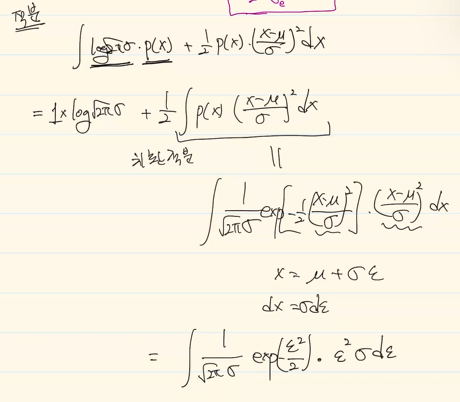 적분
∫ log√2πσ · p(x) + 1/2 p(x) · (x-μ/σ)² dx
= 1 × log√2πσ + 1/2 ∫ p(x) (x-μ/σ)² dx
치환적분 ||
∫ 1/√2πσ exp[-1/2 (x-μ/σ)²] · (x-μ/σ)² dx
x = μ + σε
dx = σdε
= ∫ 1/√2πσ exp(-ε²/2) · ε² σdε